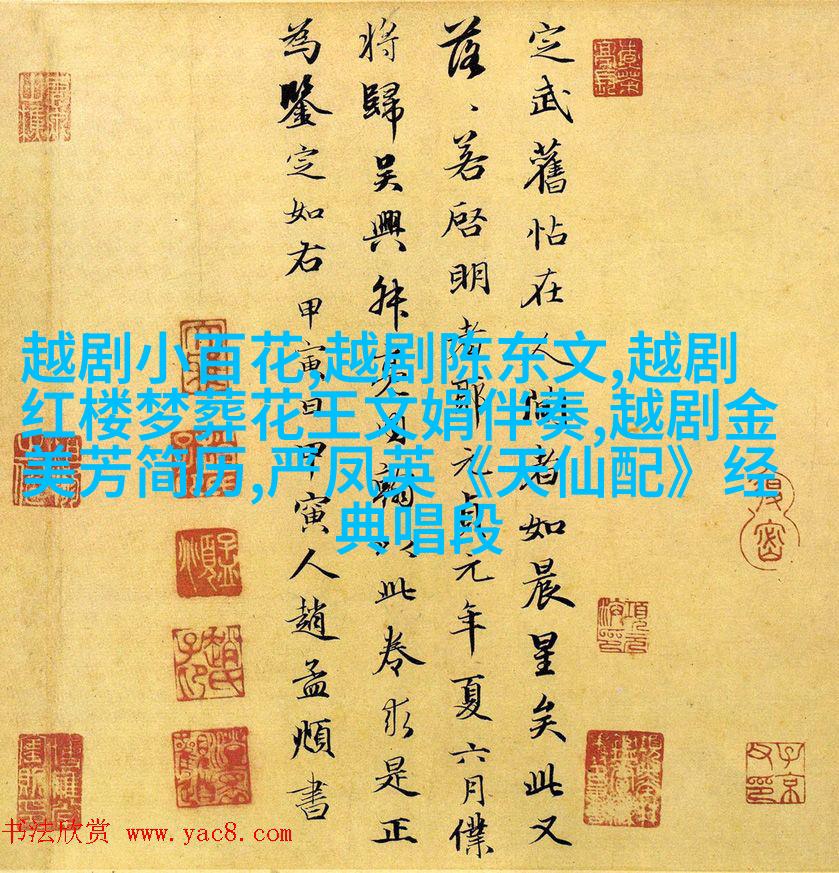 越剧小百花,越剧陈东文,越剧
红楼梦葬花王文娟伴奏,越剧金
美芳简历,严凤英《天仙配》经
典唱段
定武舊帖在人間者如晨星矣此又
落、若啓明者耶元貞元年夏六月僕
將歸吳興叔亮內翰以此卷求是正
為鑒定如右甲寅日甲寅人趙孟頫書
书法欣赏 www.yac8.com